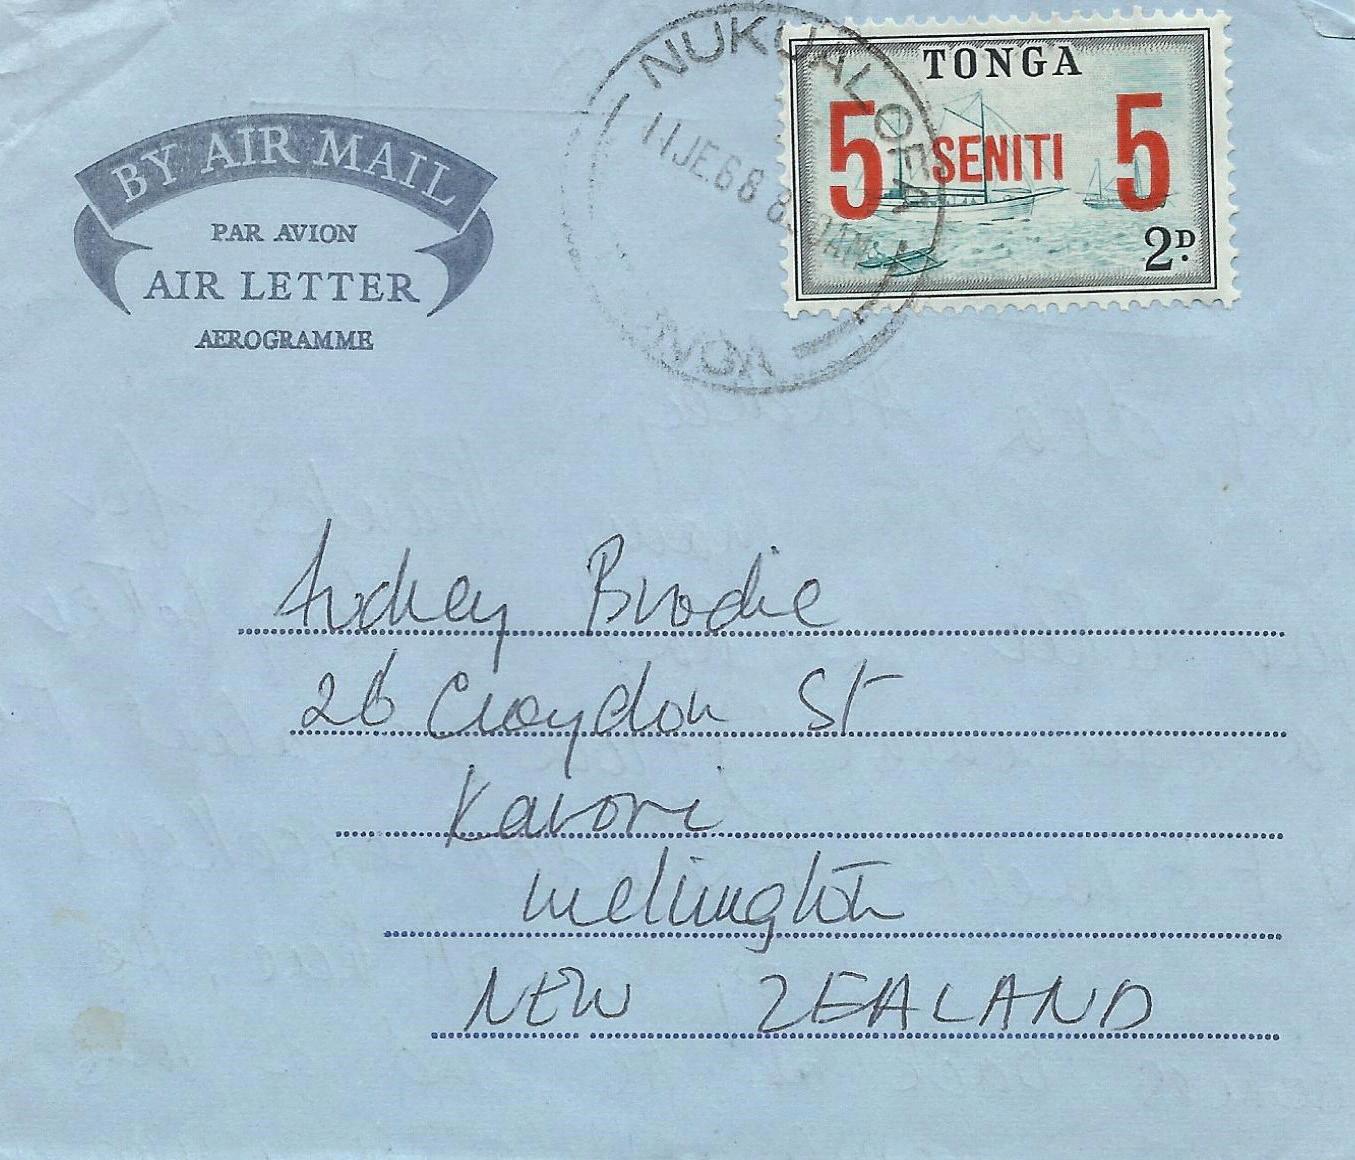 BY AIR MAIL
PAR AVION
AIR LETTER
AEROGRAMME
NUKUALOFA
11 JE 68 8
AM
TONGA
TONGA
5 SENITI 5
2D.
Audrey Brodie
26 Croydon St
Karori
Wellington
NEW ZEALAND